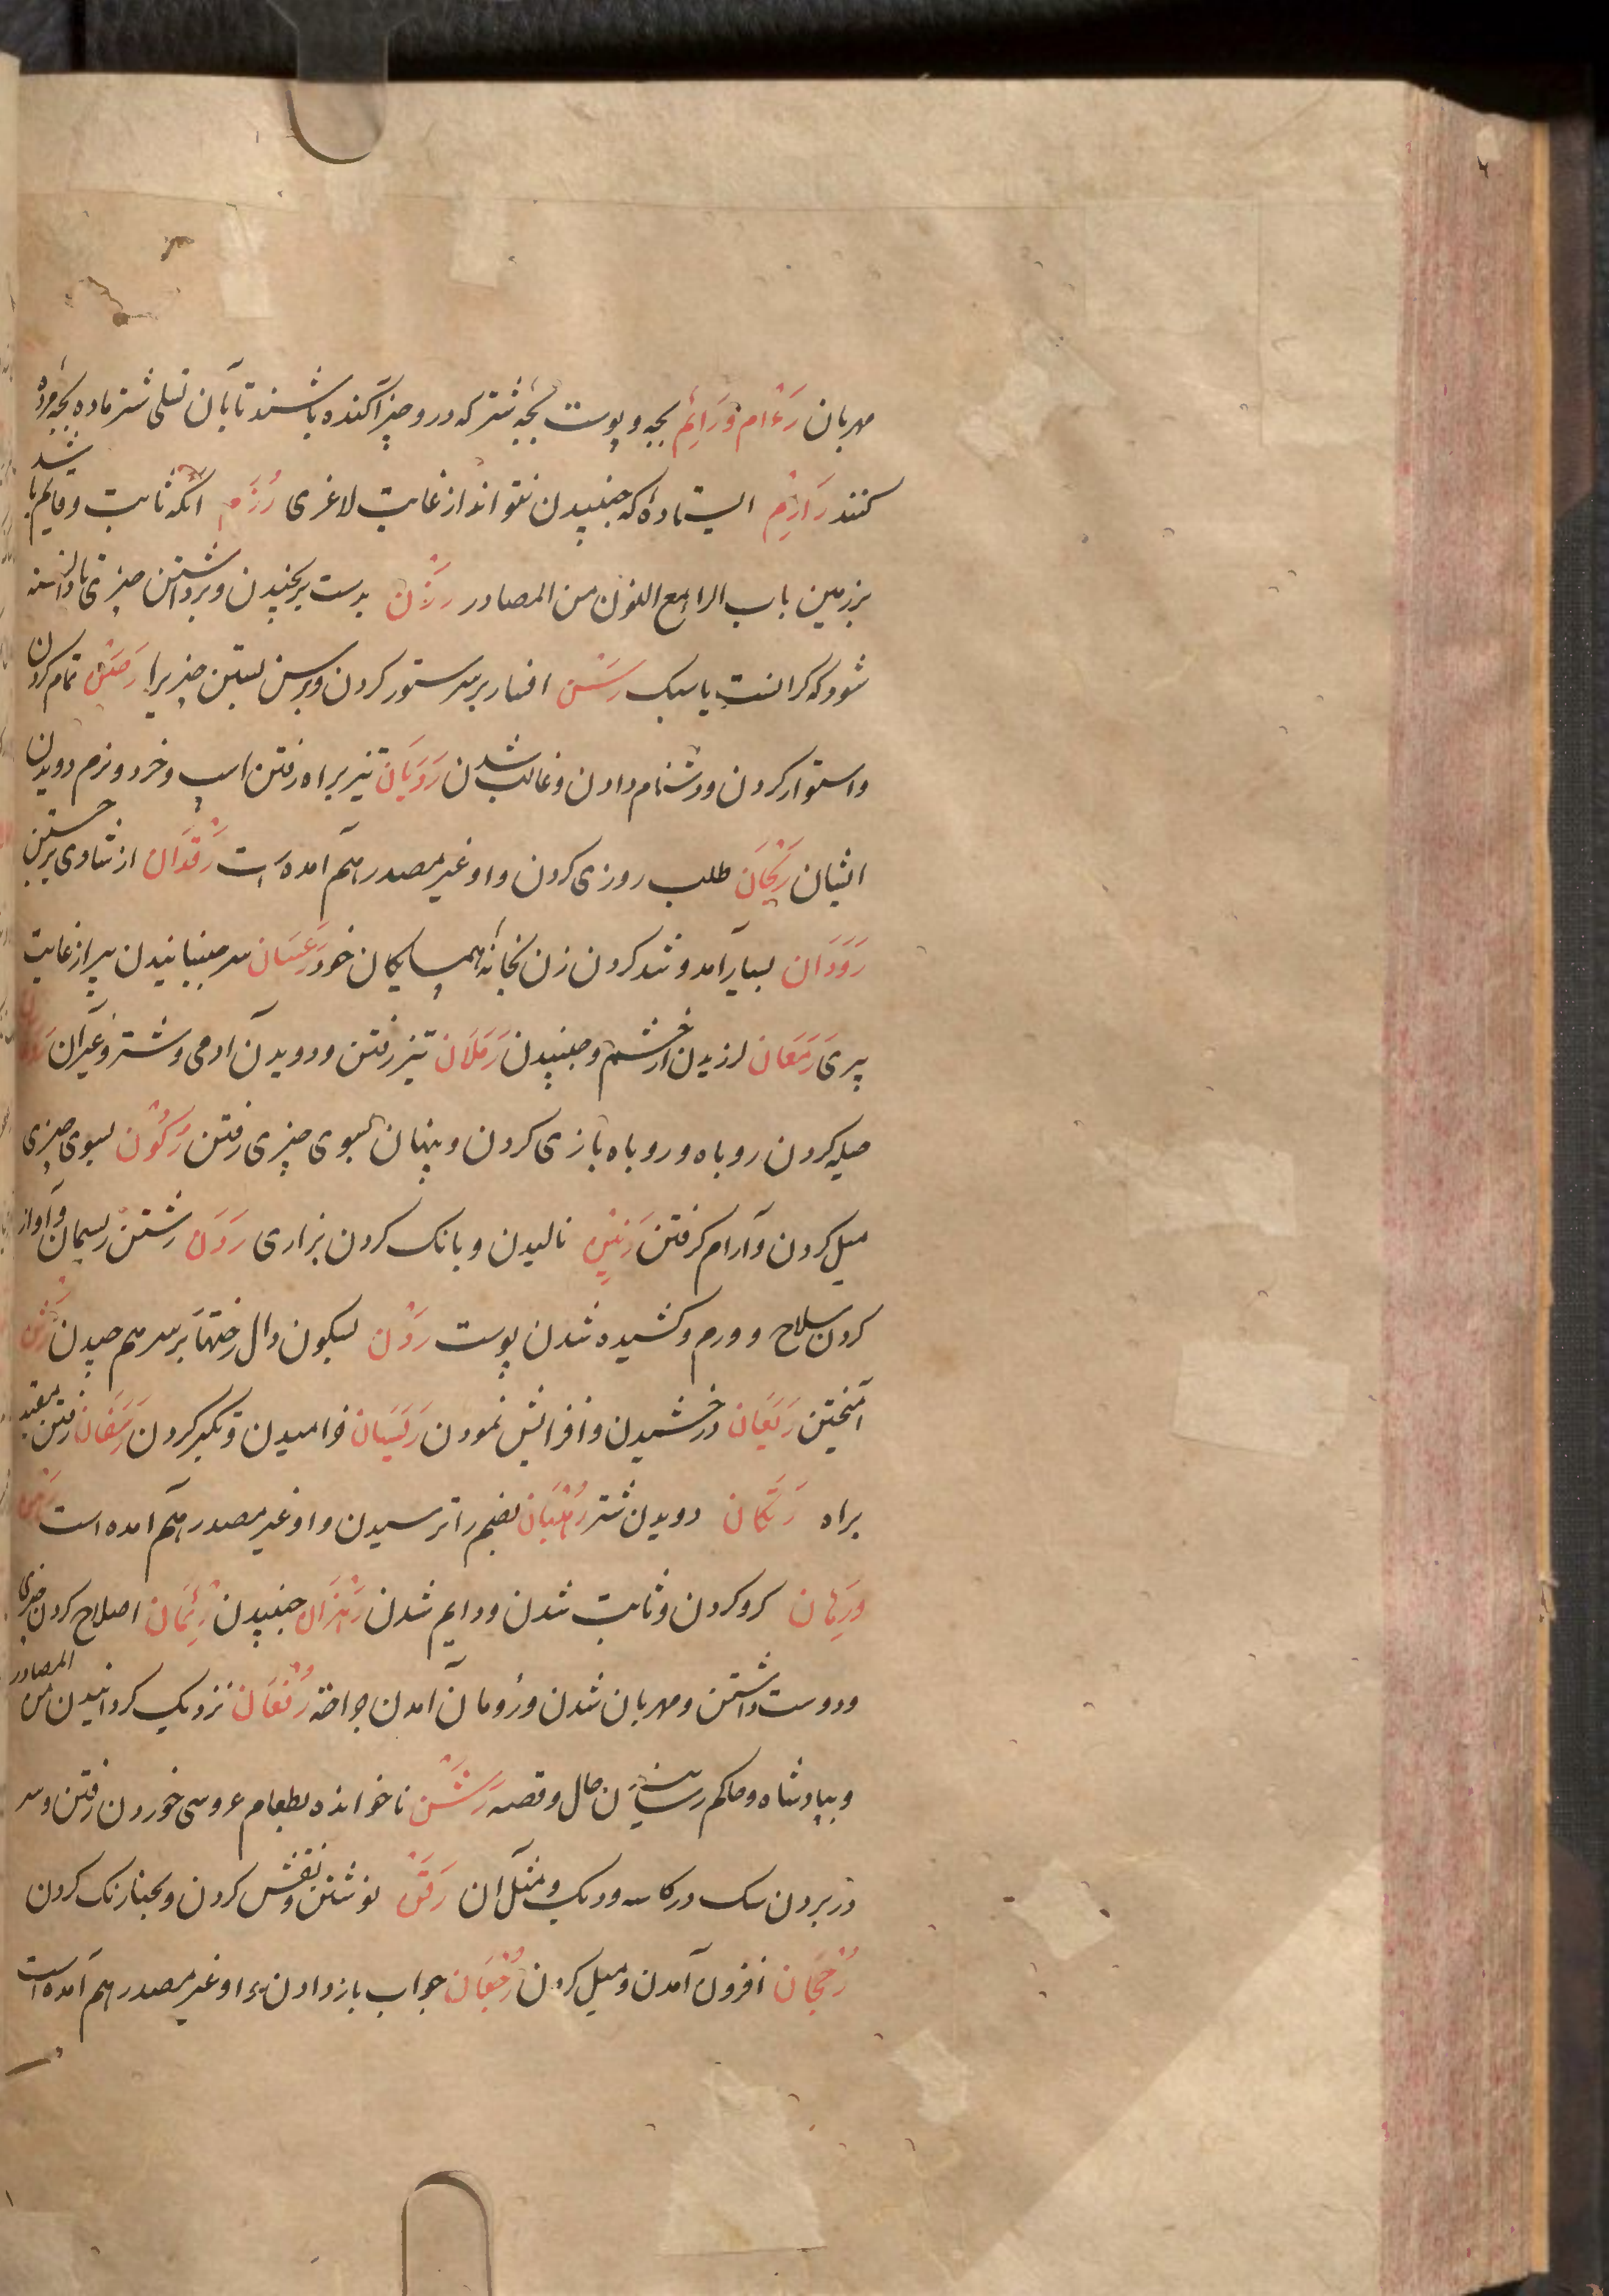 مهربان رَءْام وَرَائِم بچه و پوست بچهٔ شتر که درو چیز آکنده باشند تا بآن تسلی شتر ماده بچه مرده
کنند رَازِم ایستادهٔ که جنبیدن نتواند از غایت لاغری رُزَم انکه ثابت و قایم باشد
بر زمین باب الرا مع النون من المصادر رَزْن بدست برنجیدن و برداشتن چیزی تا دانسته
شود که کرانست یا سبک رَسَن افسار بر سر ستور کردن و برسن بستن چیزیرا رَصْن تمام کردن
و استوار کردن و دشنام دادن و غالب شدن رَدَیَان تیز براه رفتن اسپ و خرد و نرم دویدن
ایشان رَیْحَان طلب روزی کردن و او غیر مصدر هم آمده است رَقَدَان از شادی بر جستن
رَوَدَان بسیار آمد و شد کردن زن بخانهٔ همسایکان خود رَعَسَان سر جنبانیدن پیر از غایت
پیری رَمَعَان لرزیدن از خشم و جنبیدن رَمَلَان تیز رفتن و دویدن آدمی و شتر و غیر آن
حیله کردن روباه و روباه بازی کردن و پنهان بسوی چیزی رفتن رُکُون بسوی چیزی
میل کردن و آرام کرفتن رَنِین نالیدن و بانک کردن بزاری رَدَن رشتن ریسمان و آواز
کردن سلاح و ورم و کشیده شدن پوست رَدْن بسکون دال رختها بر سر هم چیدن
آمیختن رَیَعَان درخشیدن و افزایش نمودن رَیَسَان خرامیدن و تکبر کردن رَسَفَان رفتن مقید
براه رَتَکَان دویدن شتر رُهْبَان بضم را ترسیدن و او غیر مصدر هم آمده است رَهْن
وَرِهَان کرو کردن و ثابت شدن و دایم شدن رَهَزَان جنبیدن رِئْمَان اصلاح کردن چیزی
و دوست داشتن و مهربان شدن و رومان آمدن جراحت رُفْعَان نزدیک کردانیدن من المصادر
و بپادشاه و حاکم رسانیدن حال و قصه رَشْن ناخوانده بطعام عروسی خوردن رفتن و سر
در بردن سک در کاسه و دیک و مثل آن رَقْن نوشتن و نقش کردن و بحنا رنک کردن
رُجْحَان افزون آمدن و میل کردن رُجْعَان جواب باز دادن و او غیر مصدر هم آمده است